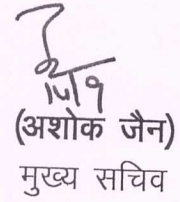 (अशोक जैन)
मुख्य सचिव